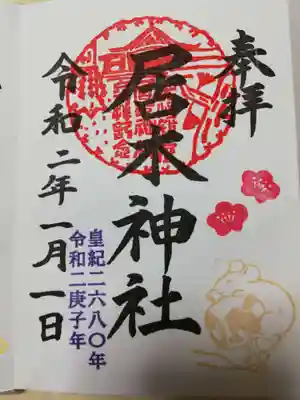 奉拝
居木神社
皇紀二六八〇年
令和二庚子年
令和二年一月一日